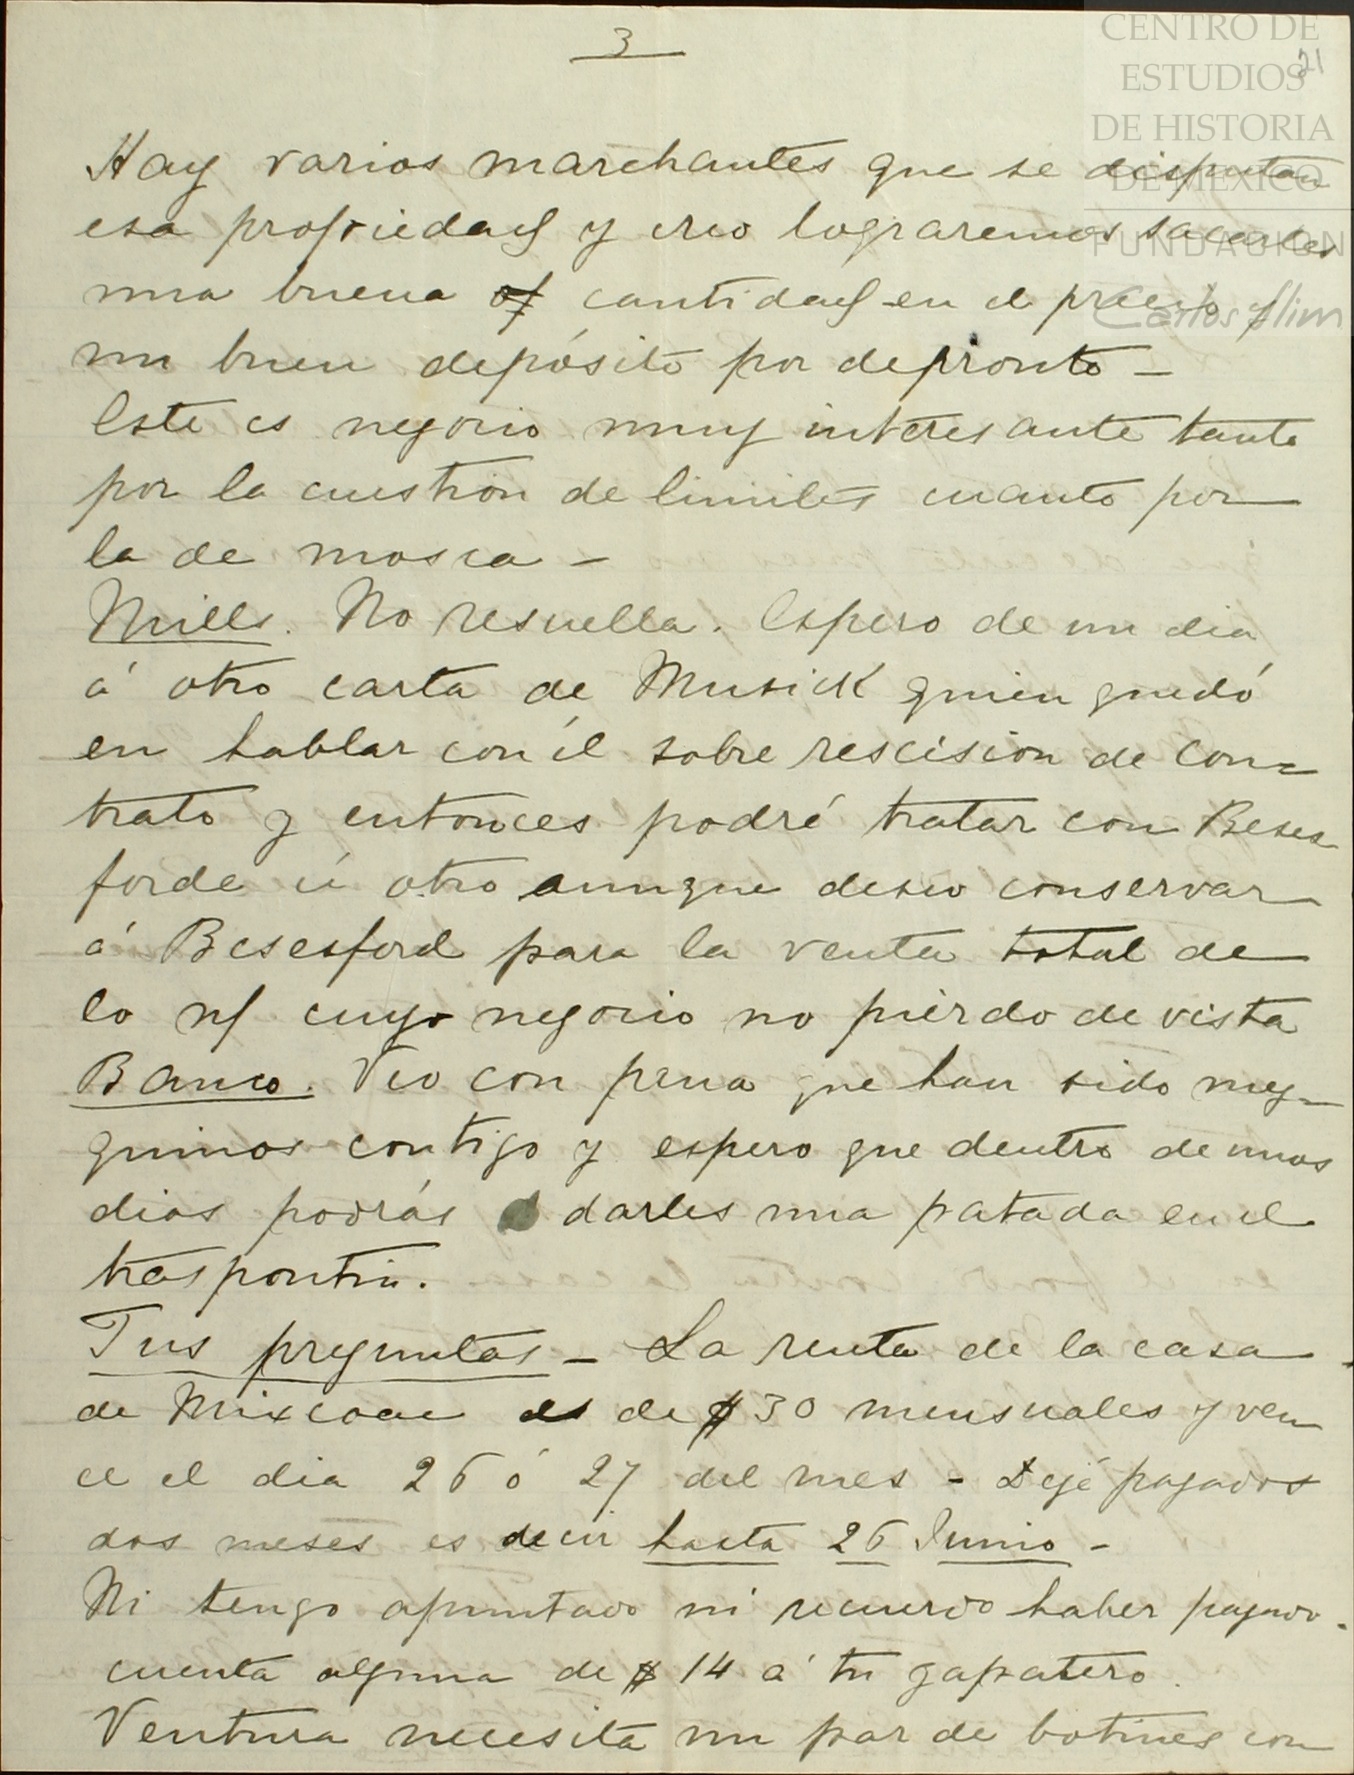 3
21
CENTRO DE
ESTUDIOS
DE HISTORIA
DE MEXICO
FUNDACION
Carlos Slim
Hay varios marchantes que se disputan
esa propiedad y creo lograremos sacarles
una buena cantidad en el precio y
un buen depósito por depronto —
Este es negocio muy interesante tanto
por la cuestion de limites cuanto por
la de mosca —
Mills. No resuella. Espero de un dia
á otro carta de Musick quien quedó
en hablar con él sobre rescision de con=
trato y entonces podré tratar con Beres
forde ú otro aunque deseo conservar
á Beresford para la venta total de
lo cuyo negocio no pierdo de vista
Banco. Veo con pena que han sido mez=
quinos contigo y espero que dentro de unos
dias podrás darles una patada en el
traspontin.
Tus preguntas — La renta de la casa
de Mixcoac es de $30 mensuales y ven
ce el dia 26 ó 27 del mes — Dejé pagados
dos meses es decir hasta 26 Junio —
Ni tengo apuntado ni recuerdo haber pagado
cuenta alguna de $14 á tu zapatero.
Ventura necesita un par de botines con